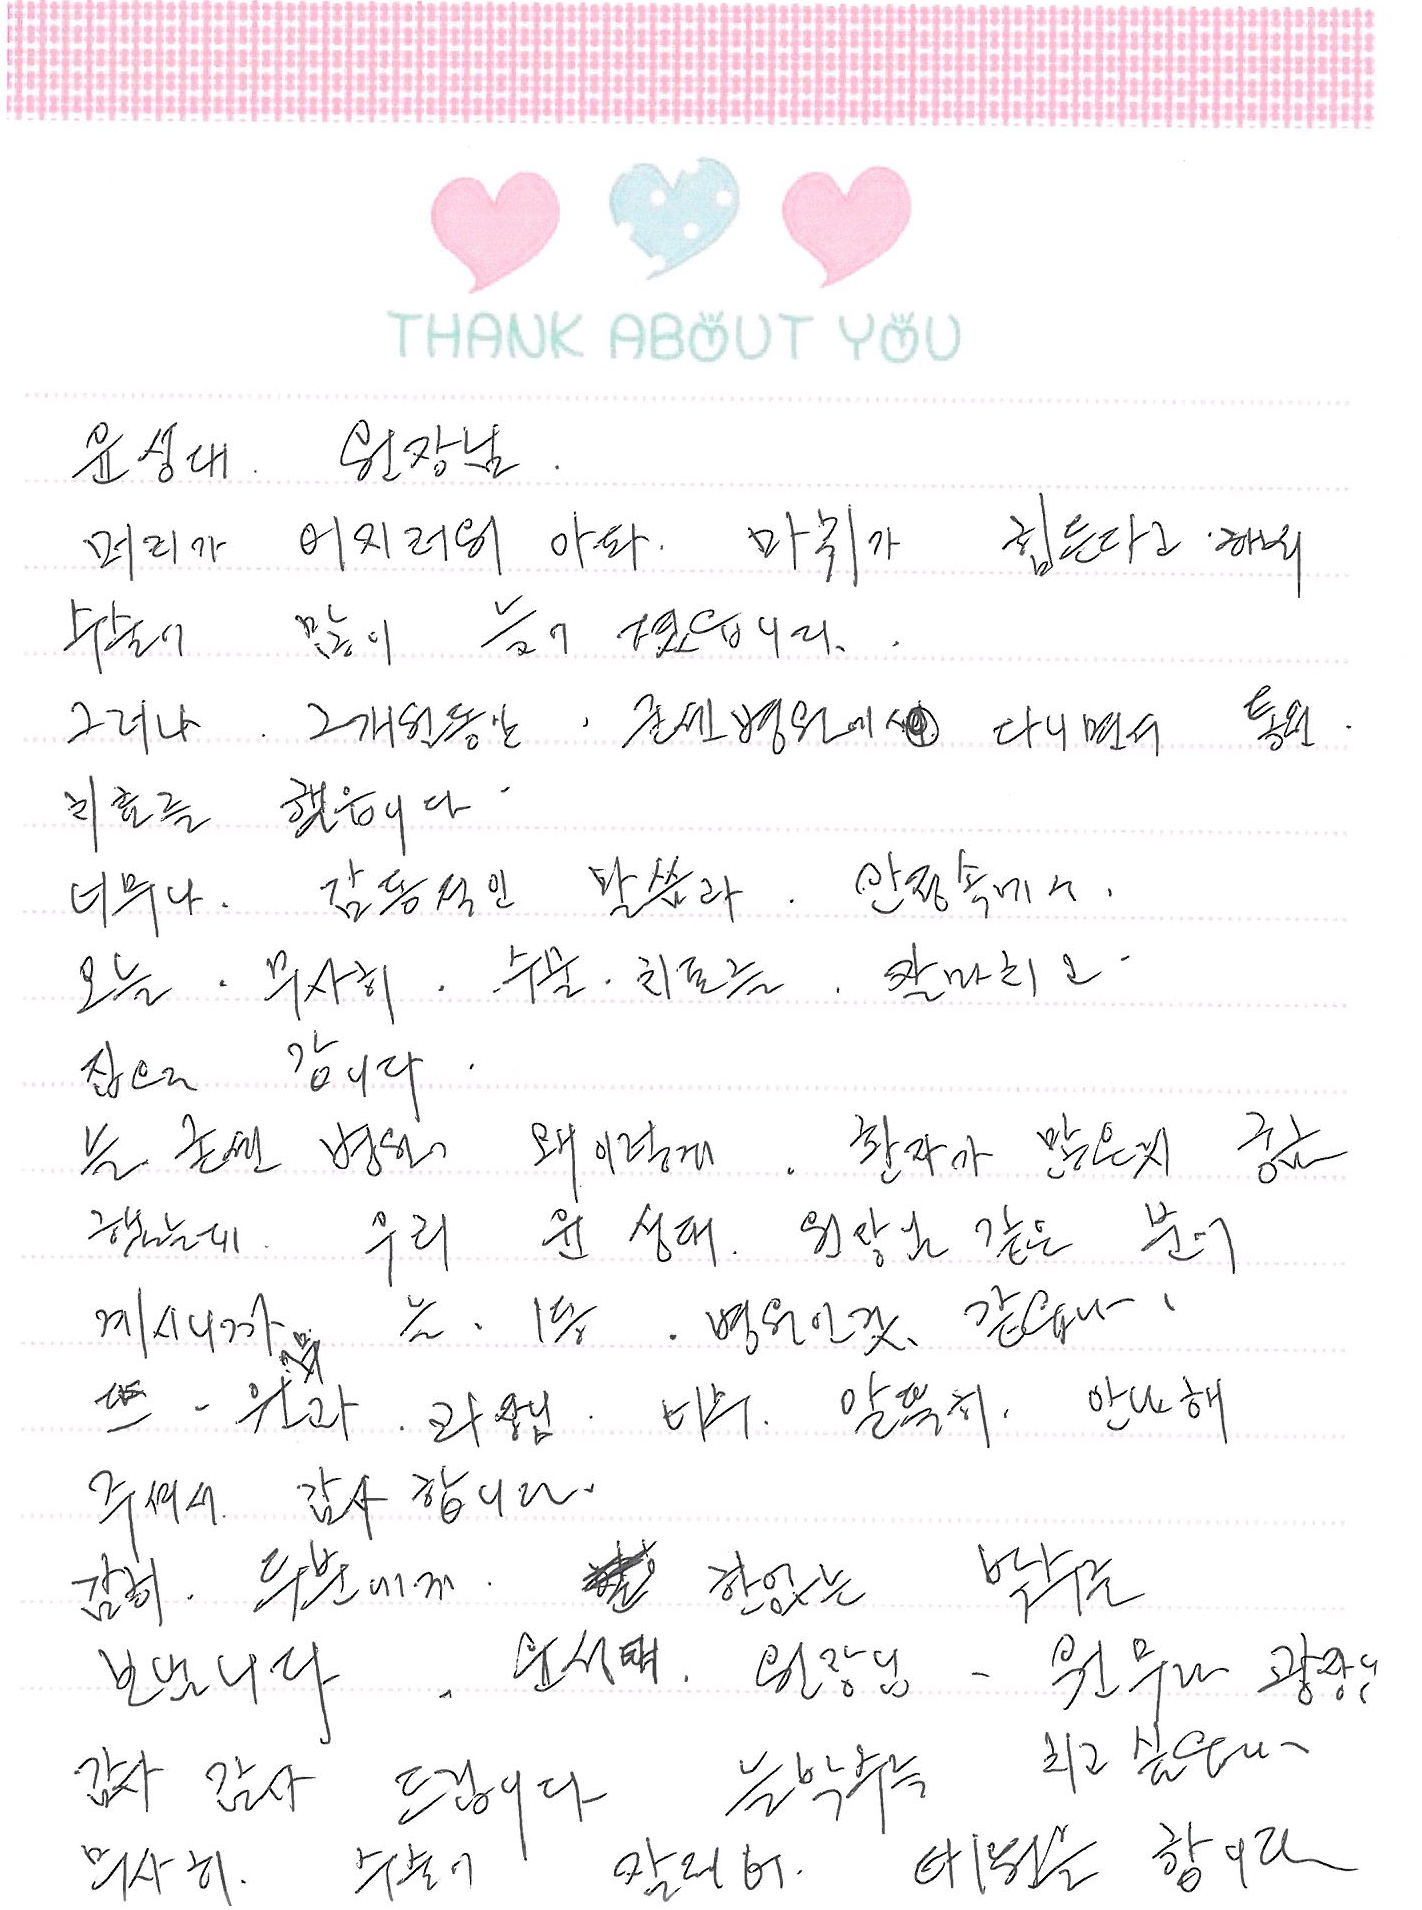 THANK ABOUT YOU
윤성대 원장님.
머리가 어지러워 아파. 마취가 힘든다고 해서
수술이 많이 늦어졌습니다.
그러나. 그 개월동안. 굳센병원에서 다니면서 통원.
치료를 했읍니다.
너무나. 감동적인 말씀과. 안정속에서.
오늘. 무사히. 수술. 치료를. 잘마치고.
집으로 갑니다.
늘. 굳센 병원이 왜이렇게. 환자가 많은지 궁금
했는데. 우리 윤성대. 원장님 같은 분이
계시니까 늘. 1등. 병원인것. 같습니다.
또. 원무과. 과장님. 너무. 알뜩히. 안내해
주셔서. 감사합니다.
감히. 두분에게. 한없는 박수를
보냅니다. 윤성대. 원장님 - 원무과 과장님
감사 감사 드립니다 늘박수를 치고 싶습니다
무사히. 수술이 잘되어. 퇴원을 합니다